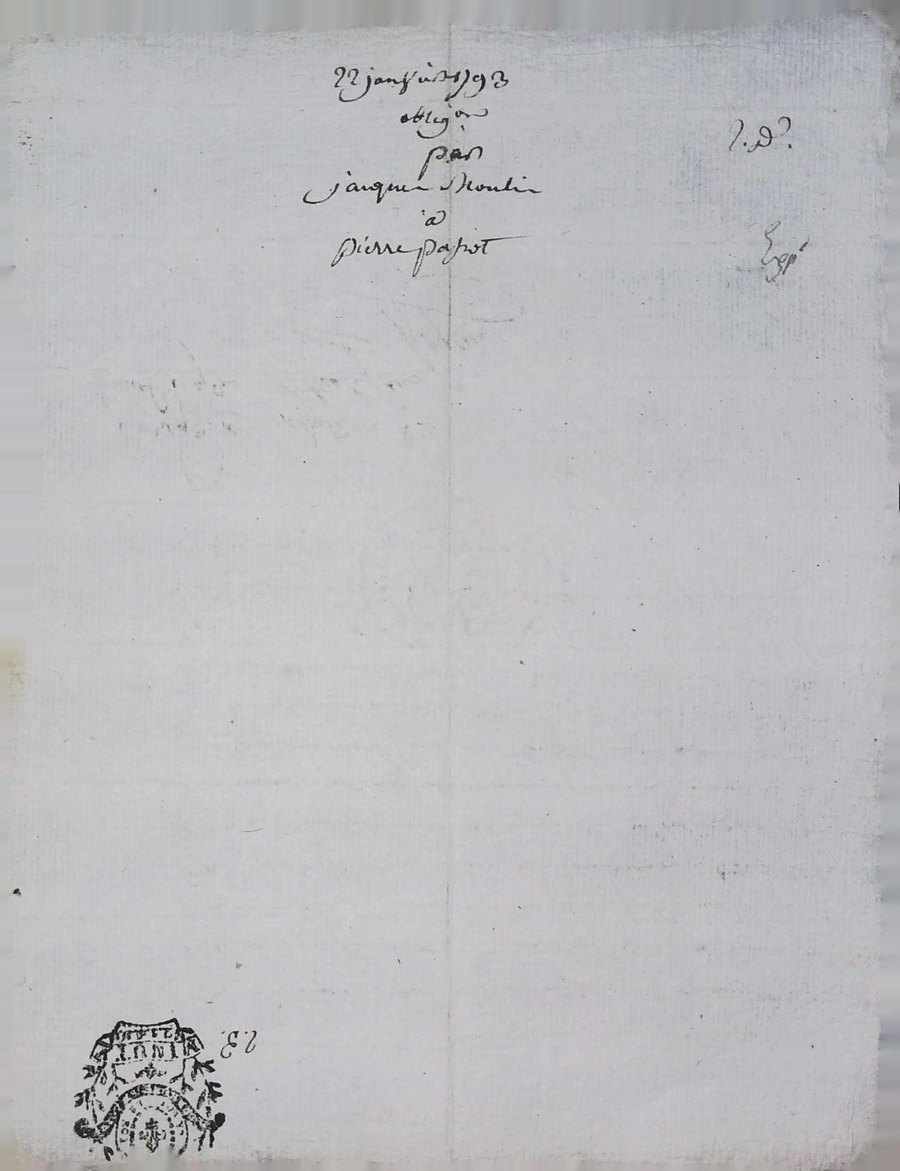 22 janvier 1793
obligaon
par
jacques Moulin
à
pierre passot
2. d?
Expé